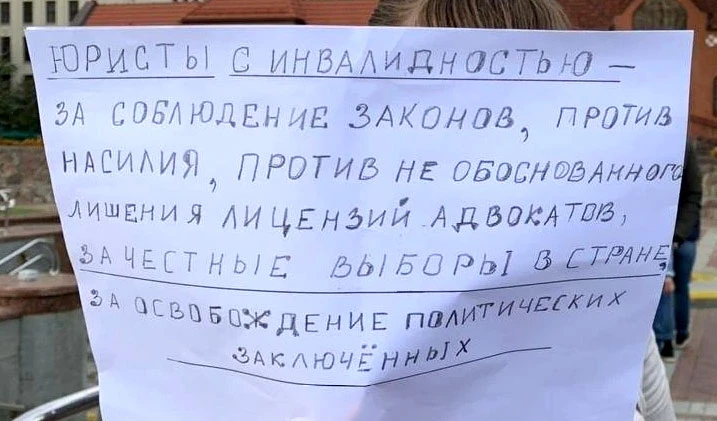 ЮРИСТЫ С ИНВАЛИДНОСТЬЮ –
ЗА СОБЛЮДЕНИЕ ЗАКОНОВ, ПРОТИВ
НАСИЛИЯ, ПРОТИВ НЕ ОБОСНОВАННОГО
ЛИШЕНИЯ ЛИЦЕНЗИЙ АДВОКАТОВ,
ЗА ЧЕСТНЫЕ ВЫБОРЫ В СТРАНЕ,
ЗА ОСВОБОЖДЕНИЕ ПОЛИТИЧЕСКИХ
ЗАКЛЮЧЁННЫХ